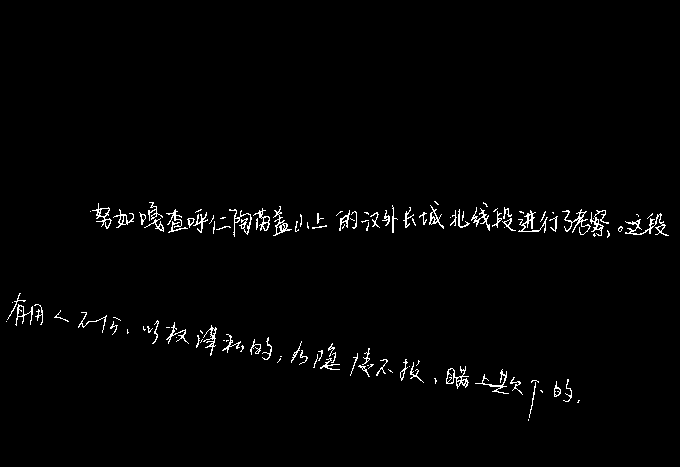 努如嘎查呼仁陶勒盖山上的汉外长城北线段进行了考察。这段
有用人不公、以权谋私的,有隐情不报、瞒上欺下的,